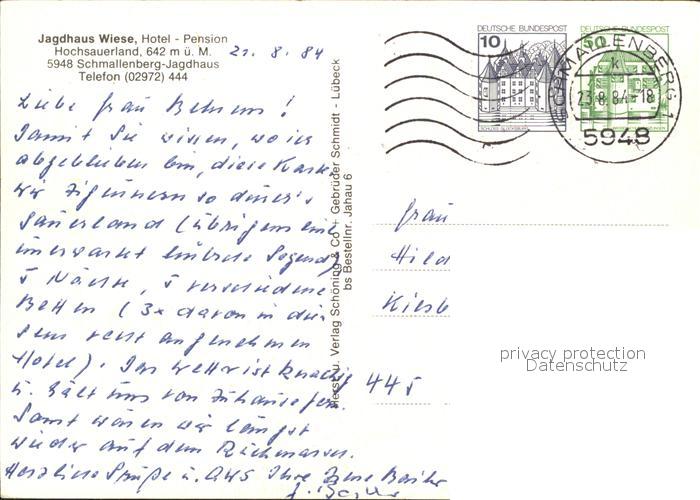 Jagdhaus Wiese, Hotel - Pension
Hochsauerland, 642 m ü. M.
5948 Schmallenberg-Jagdhaus
Telefon (02972) 444
21. 8. 84
Liebe Frau Behrens!
Damit Sie wissen, wo ich
abgeblieben bin, diese Karte
wir zigeunern so durch's
Sauerland (übrigens eine
unerwartet hübsche Gegend)
5 Nächte, 5 verschiedene
Betten (3x davon in diesem
sehr angenehmen
Hotel). Das Wetter ist
u. hält uns von Zuhause fern.
Sonst wären wir längst
wieder auf dem
Herzliche Grüße u. Ihre
Herst. u. Verlag Schöning & Co + Gebrüder Schmidt - Lübeck
bs Bestellnr. Jahau 6
DEUTSCHE BUNDESPOST
10
SCHLOSS GLÜCKSBURG
DEUTSCHE BUNDESPOST
50
SCHMALLENBERG 1
k
23.8.84-18
5948
Frau
Hild
Kieb
445
privacy protection
Datenschutz